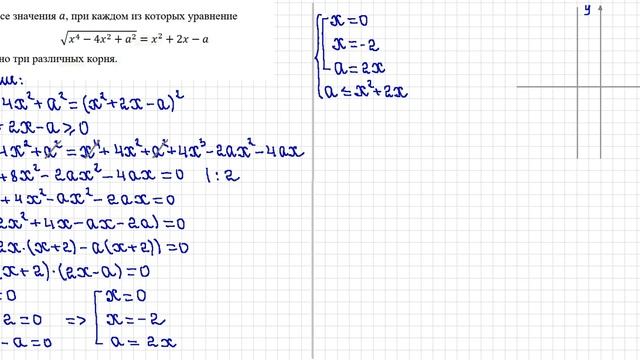 се значения a, при каждом из которых уравнение
√(x⁴ − 4x² + a²) = x² + 2x − a
но три различных корня.
ие:
4x²+a²=(x²+2x-a)²
+ 2x-a⩾0
4x²+a²=x⁴+4x²+a²+4x³-2ax²-4ax
+8x²-2ax²-4ax=0 |:2
+4x²-ax²-2ax=0
2x²+4x-ax-2a)=0
2x·(x+2)-a(x+2))=0
x+2)·(2x-a)=0
=0
2=0 => x=0
-a=0 x=-2
a=2x
x=0
x=-2
a=2x
a≤x²+2x
y